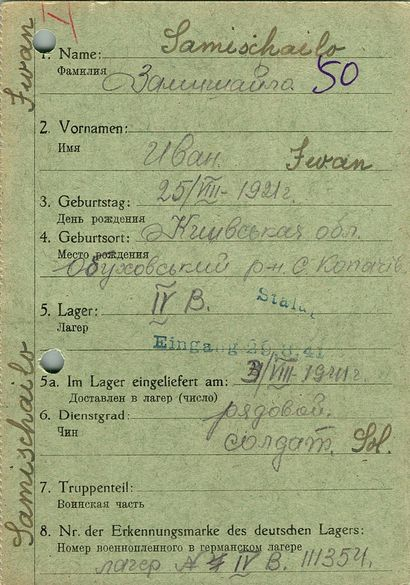 Samischailo
1. Name:
Фамилия
Замишайло
50
2. Vornamen:
Имя
Иван
Iwan
3. Geburtstag: 25/VIII-1921г.
День рождения
4. Geburtsort: Киивськая обл.
Место рождения
Обуховський р-н. С. Копачів
5. Lager: IV В.
Лагер
Stalag
Eingang 29.8.41
5a. Im Lager eingeliefert am: /VIII-1941г.
Доставлен в лагер (число)
6. Dienstgrad: рядовой.
Чин
солдат. Sol.
7. Truppenteil:
Воинская часть
8. Nr. der Erkennungsmarke des deutschen Lagers:
Номер военнопленного в германском лагере
лагер IV В. 111354.
Samischailo Iwan